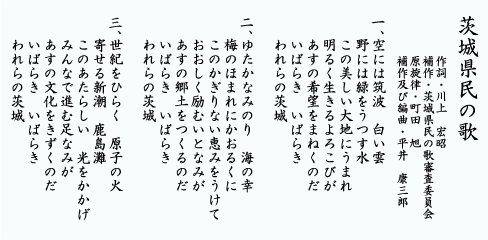 茨城県民の歌
作詞・川上　宏昭
補作・茨城県民の歌審査委員会
原旋律・町田　旭
補作及び編曲・平井　康三郎
一、空には筑波　白い雲
野には緑をうつす水
この美しい大地にうまれ
明るく生きるよろこびが
あすの希望をまねくのだ
いばらき　いばらき
われらの茨城
二、ゆたかなみのり　海の幸
梅のほまれにかおるくに
このかぎりない恵みをうけて
おおしく励むいとなみが
あすの郷土をつくるのだ
いばらき　いばらき
われらの茨城
三、世紀をひらく　原子の火
寄せる新潮　鹿島灘
このあたらしい　光をかかげ
みんなで進む足なみが
あすの文化をきずくのだ
いばらき　いばらき
われらの茨城